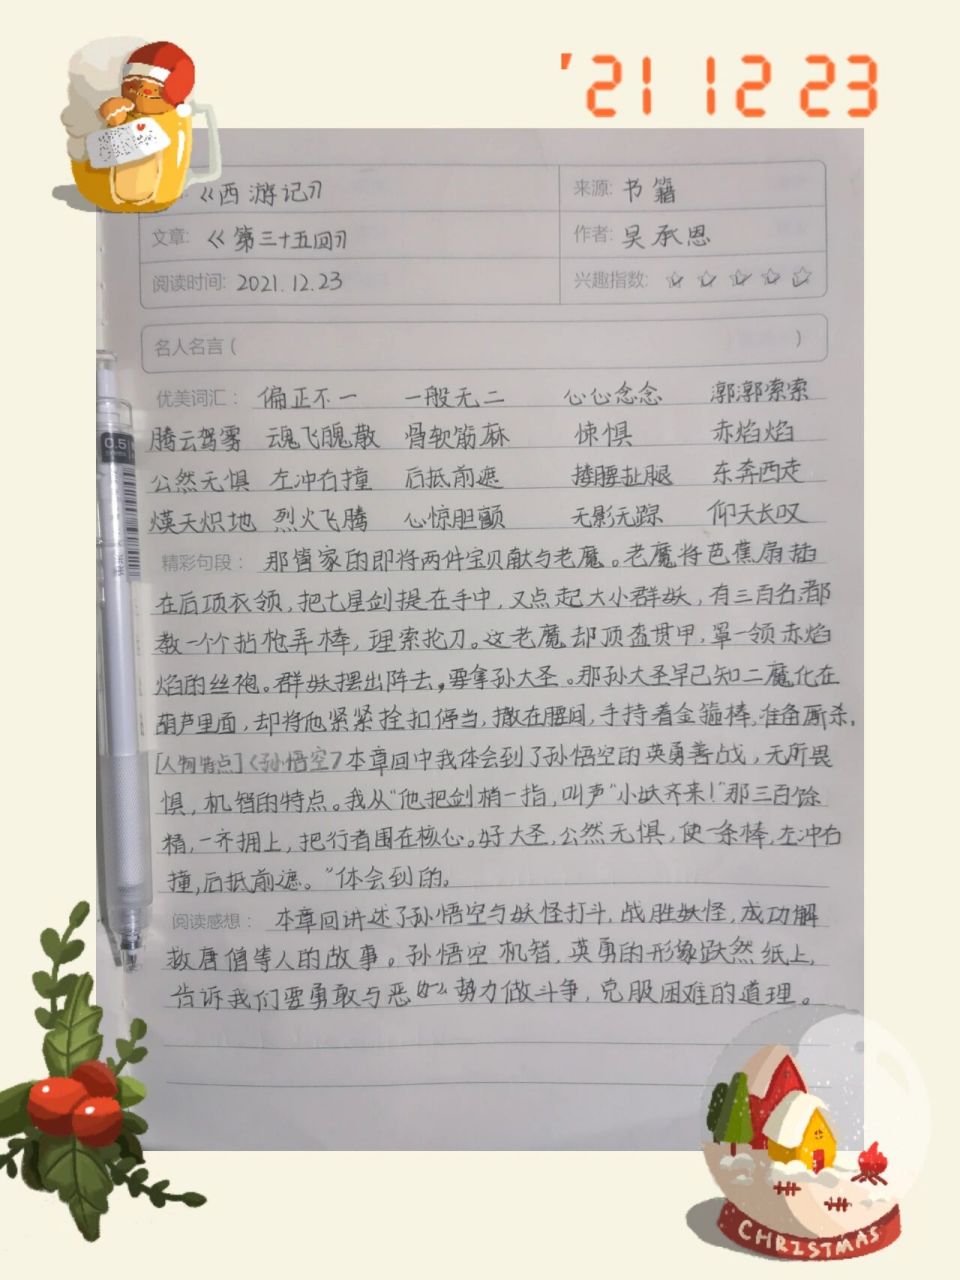 '21 12 23
《西游记》 来源: 书籍
文章: 《第三十五回》 作者: 吴承恩
阅读时间: 2021.12.23 兴趣指数: ☆ ☆ ☆ ☆ ☆
名人名言 ( )
优美词汇: 偏正不一 一般无二 心心念念 漷漷索索
腾云驾雾 魂飞魄散 骨软筋麻 悚惧 赤焰焰
公然无惧 左冲右撞 后抵前遮 搂腰扯腿 东奔西走
熯天炽地 烈火飞腾 心惊胆颤 无影无踪 仰天长叹
精彩句段: 那管家的即将两件宝贝献与老魔。老魔将芭蕉扇插
在后项衣领,把七星剑提在手中,又点起大小群妖,有三百名都
教一个个拈枪弄棒,理索抡刀。这老魔却顶盔贯甲,罩一领赤焰
焰的丝袍。群妖摆出阵去,要拿孙大圣。那孙大圣早已知二魔化在
葫芦里面,却将他紧紧拴扣停当,撒在腰间,手持着金箍棒,准备厮杀。
[人物特点]《孙悟空》本章回中我体会到了孙悟空的英勇善战,无所畏
惧,机智的特点。我从“他把剑梢一指,叫声“小妖齐来!”那三百馀
精,一齐拥上,把行者围在核心。好大圣,公然无惧,使一条棒,左冲右
撞,后抵前遮。”体会到的。
阅读感想: 本章回讲述了孙悟空与妖怪打斗,战胜妖怪,成功解
救唐僧等人的故事。孙悟空机智,英勇的形象跃然纸上,
告诉我们要勇敢与恶势力做斗争,克服困难的道理。
0.5
CHRISTMAS